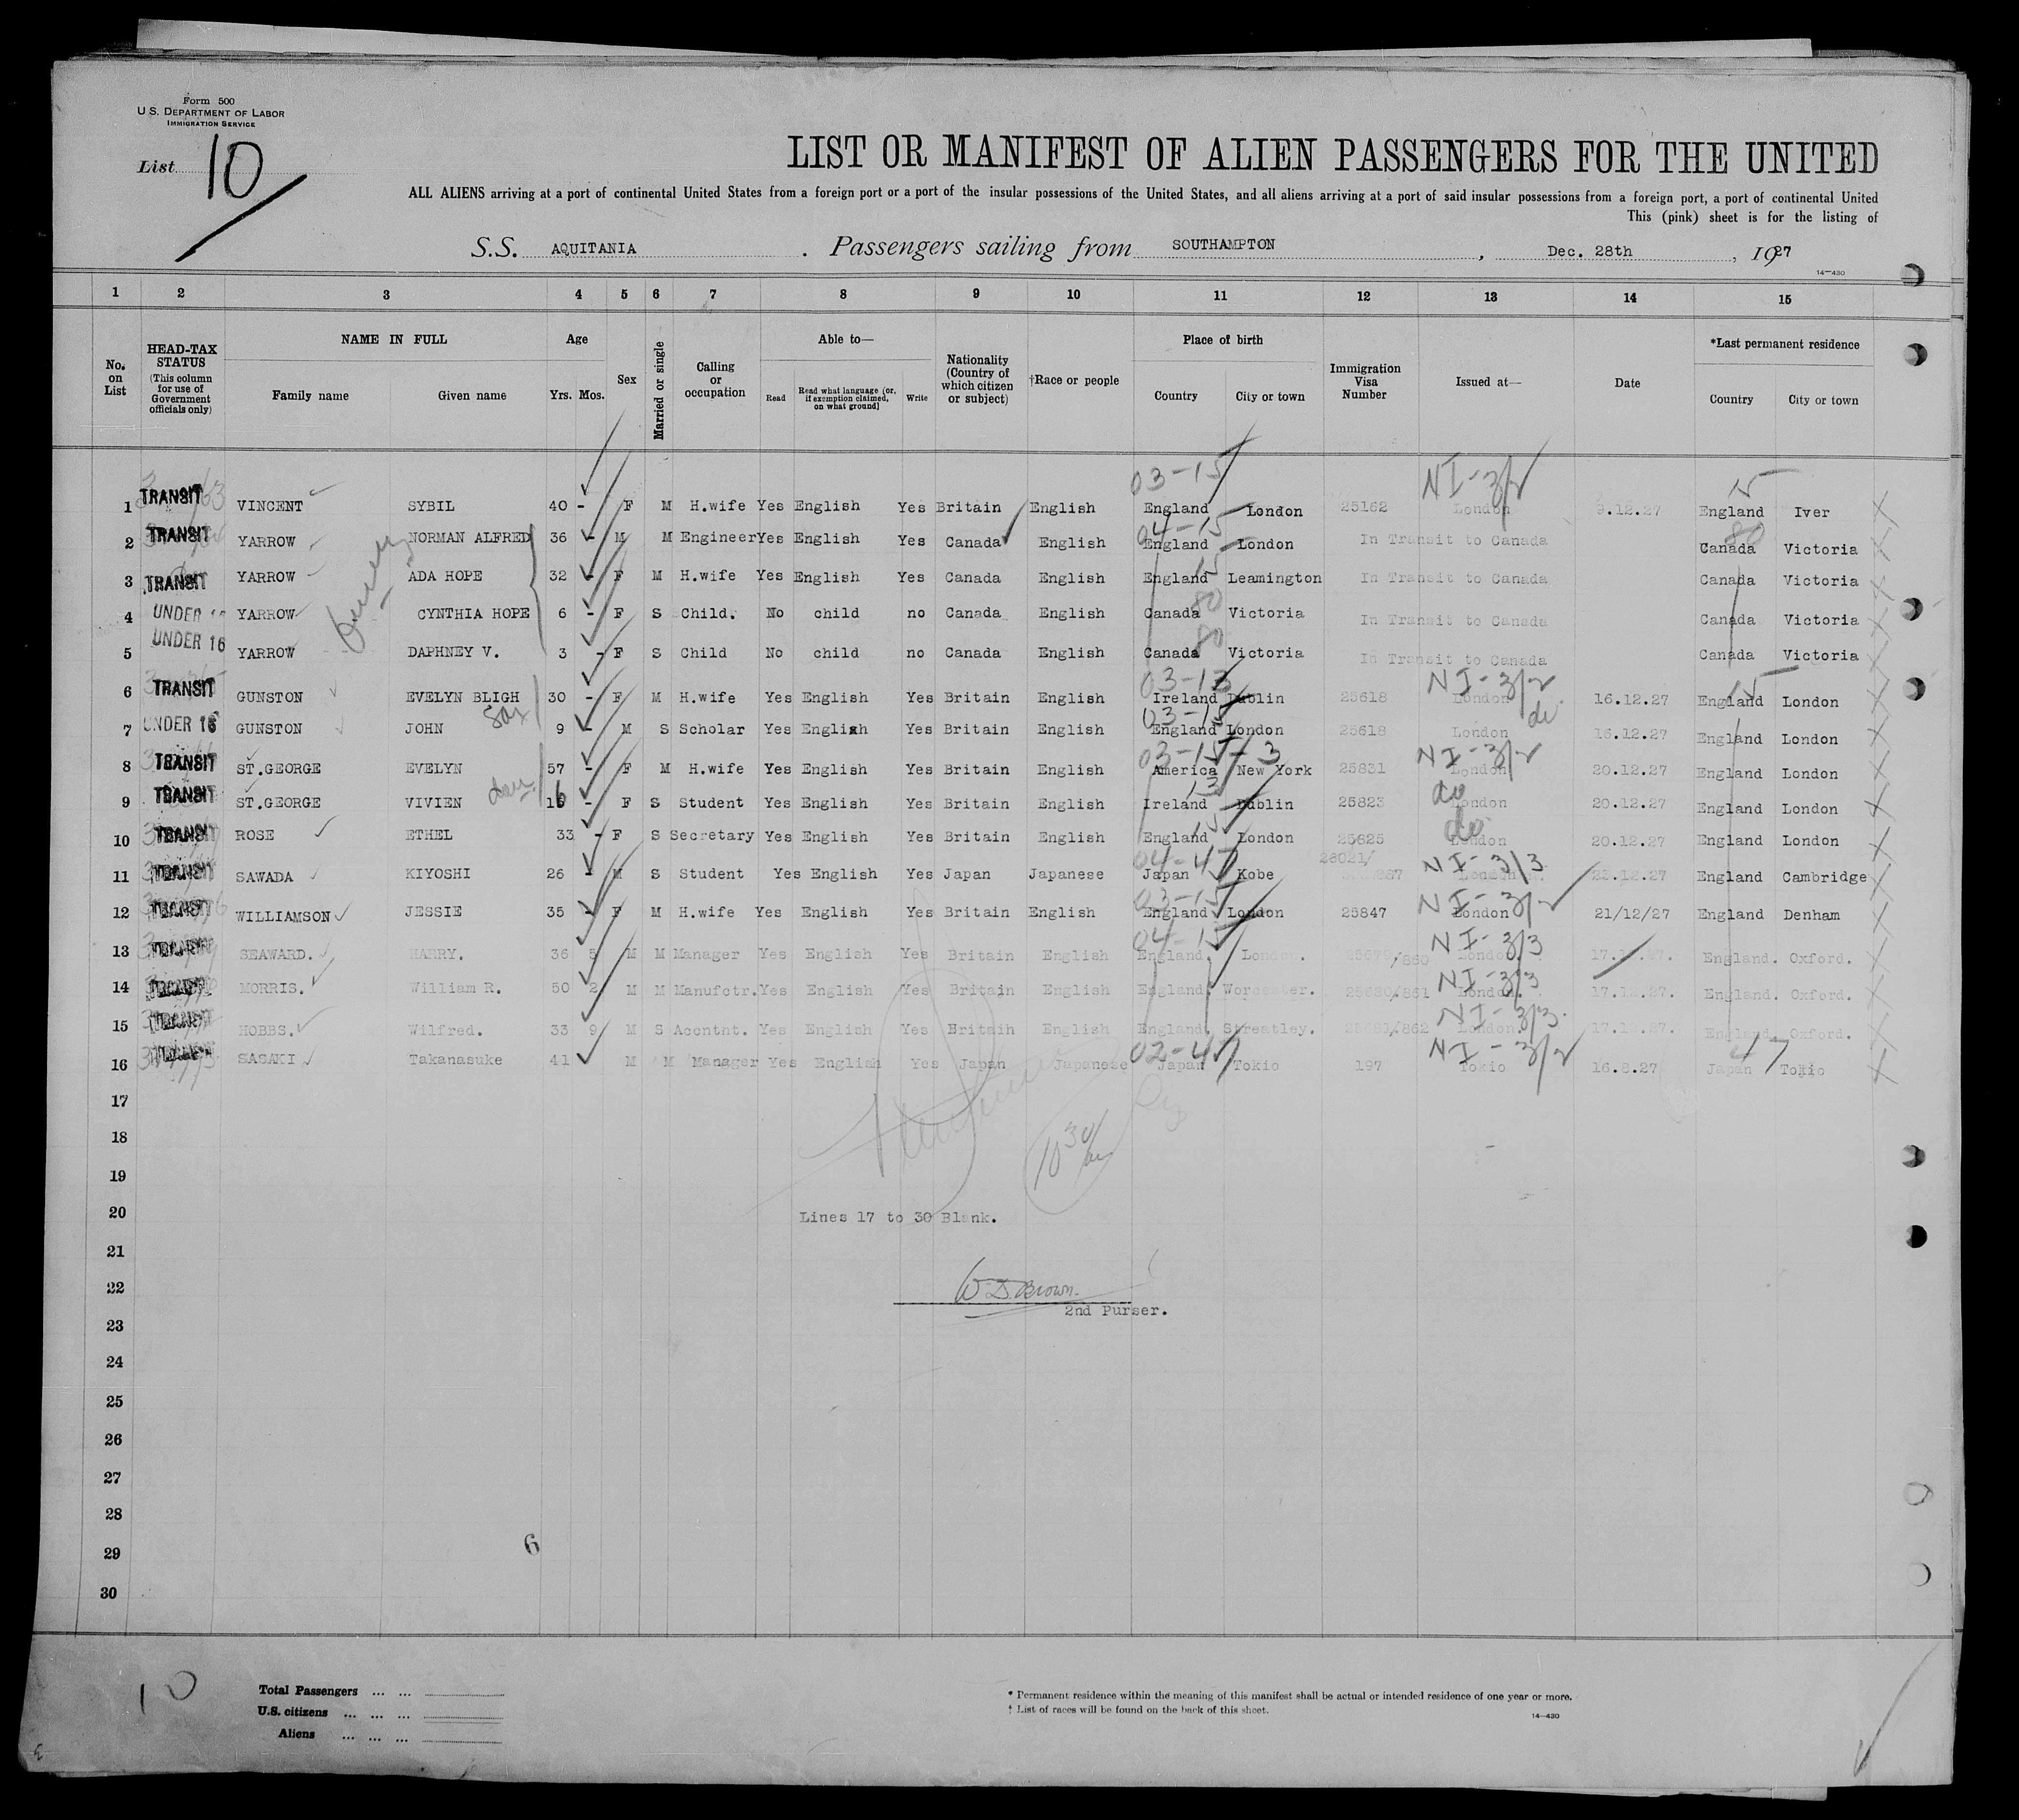 Form 500
U.S. DEPARTMENT OF LABOR
IMMIGRATION SERVICE
List 10
LIST OR MANIFEST OF ALIEN PASSENGERS FOR THE UNITED
ALL ALIENS arriving at a port of continental United States from a foreign port or a port of the insular possessions of the United States, and all aliens arriving at a port of said insular possessions from a foreign port, a port of continental United
This (pink) sheet is for the listing of
S.S. AQUITANIA . Passengers sailing from SOUTHAMPTON , Dec. 28th , 1927
14—430
1 2 3 4 5 6 7 8 9 10 11 12 13 14 15
No. on List
HEAD-TAX STATUS (This column for use of Government officials only)
NAME IN FULL
Family name Given name
Age
Yrs. Mos.
Sex
Married or single
Calling or occupation
Able to—
Read Read what language [or, if exemption claimed, on what ground] Write
Nationality (Country of which citizen or subject)
†Race or people
Place of birth
Country City or town
Immigration Visa Number
Issued at—
Date
*Last permanent residence
Country City or town
03-15 NI-3/2 15
1 TRANSIT VINCENT SYBIL 40 - F M H.wife Yes English Yes Britain English England London 25162 London 9.12.27 England Iver
04-15 80
2 TRANSIT YARROW NORMAN ALFRED 36 - M M Engineer Yes English Yes Canada English England London In Transit to Canada Canada Victoria
family
15
3 TRANSIT YARROW ADA HOPE 32 - F M H.wife Yes English Yes Canada English England Leamington In Transit to Canada Canada Victoria
80
4 UNDER 16 YARROW CYNTHIA HOPE 6 - F S Child. No child no Canada English Canada Victoria In Transit to Canada Canada Victoria
80
5 UNDER 16 YARROW DAPHNEY V. 3 - F S Child No child no Canada English Canada Victoria In Transit to Canada Canada Victoria
03-13 NI-3/2 15
6 TRANSIT GUNSTON EVELYN BLIGH 30 - F M H.wife Yes English Yes Britain English Ireland Dublin 25618 London 16.12.27 England London
03-15 do
7 UNDER 16 GUNSTON JOHN 9 M S Scholar Yes English Yes Britain English England London 25618 London 16.12.27 England London
03-15-3 NI-3/2
8 TRANSIT ST.GEORGE EVELYN 57 - F M H.wife Yes English Yes Britain English America New York 25831 London 20.12.27 England London
dau 13 do
9 TRANSIT ST.GEORGE VIVIEN 16 - F S Student Yes English Yes Britain English Ireland Dublin 25823 London 20.12.27 England London
15 do
10 TRANSIT ROSE ETHEL 33 - F S Secretary Yes English Yes Britain English England London 25625 London 20.12.27 England London
04-47 26021/ NI-3/3
11 TRANSIT SAWADA KIYOSHI 26 - M S Student Yes English Yes Japan Japanese Japan Kobe London 23.12.27 England Cambridge
03-15 NI-3/2
12 TRANSIT WILLIAMSON JESSIE 35 - F M H.wife Yes English Yes Britain English England London 25847 London 21/12/27 England Denham
04-15 NI-3/3
13 TRANSIT SEAWARD. HARRY. 36 5 M M Manager Yes English Yes Britain English England. London. 25679/860 London. England. Oxford.
NI-3/3
14 TRANSIT MORRIS. William R. 50 2 M M Manufctr. Yes English Yes Britain English England. Worcester. 25680/861 London. 17.12.27. England. Oxford.
NI-3/3.
15 TRANSIT HOBBS. Wilfred. 33 9 M S Accntnt. Yes English Yes Britain English England. Streatley. 25681/862 London. 17.12.27. England. Oxford.
02-47 NI-3/2 47
16 SASAKI Takanasuke 41 M M Manager Yes English Yes Japan Japanese Japan Tokio 197 Tokio 16.8.27 Japan Tokio
17
18
10 30/
19
20 Lines 17 to 30 Blank.
21
22 W D Brown.
2nd Purser.
23
24
25
26
27
28
29
6
30
10
Total Passengers ... ...
U.S. citizens ... ... ...
Aliens ... ... ...
* Permanent residence within the meaning of this manifest shall be actual or intended residence of one year or more.
† List of races will be found on the back of this sheet.
14—430